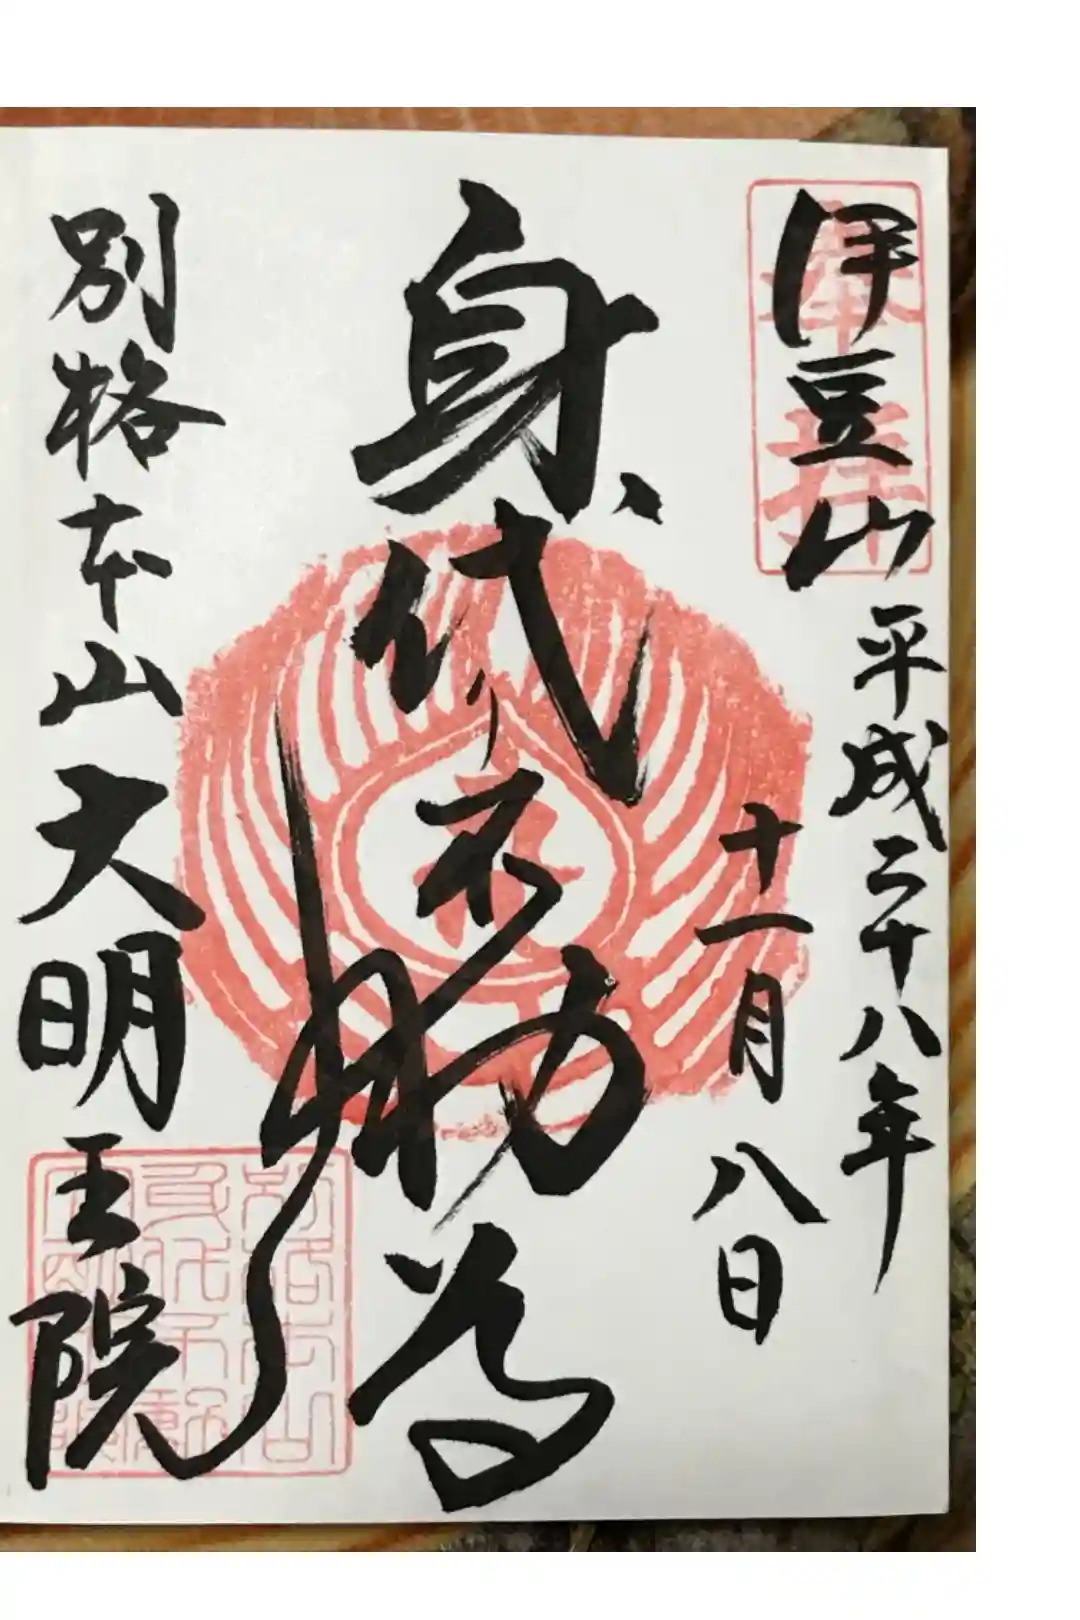 奉拝
伊豆山 平成二十八年
十一月八日
身代不動尊
別格本山大明王院